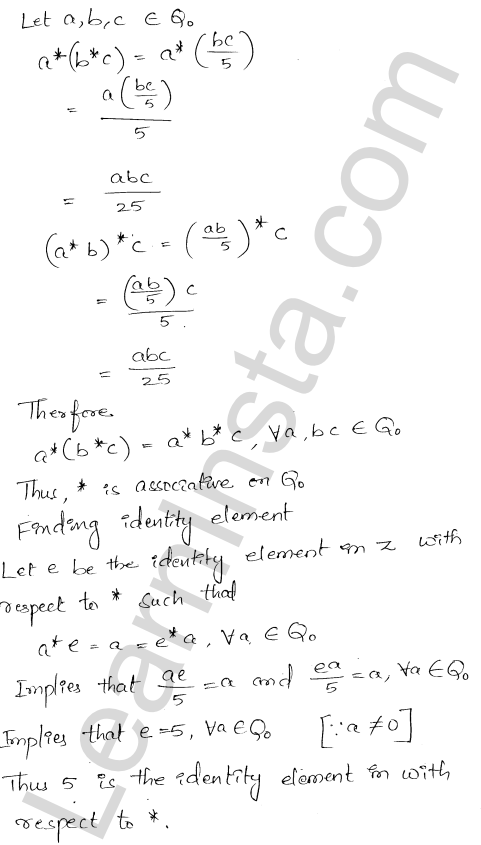 Let a, b, c ∈ Q₀
a*(b*c) = a* (bc/5)
= a(bc/5)/5
= abc/25
(a* b)*c = (ab/5)* c
= (ab/5) c/5.
= abc/25
Therfore
a*(b*c) = a* b* c, ∀a, bc ∈ Q₀
Thus, * is associative on Q₀
Finding identity element
Let e be the identity element in z with
respect to * such that
a* e = a = e* a, ∀a ∈ Q₀
Implies that ae/5 = a and ea/5 = a, ∀a ∈ Q₀
Implies that e = 5, ∀a ∈ Q₀ [∵ a ≠ 0]
Thus 5 is the identity element in with
respect to *.
LearnInsta.com